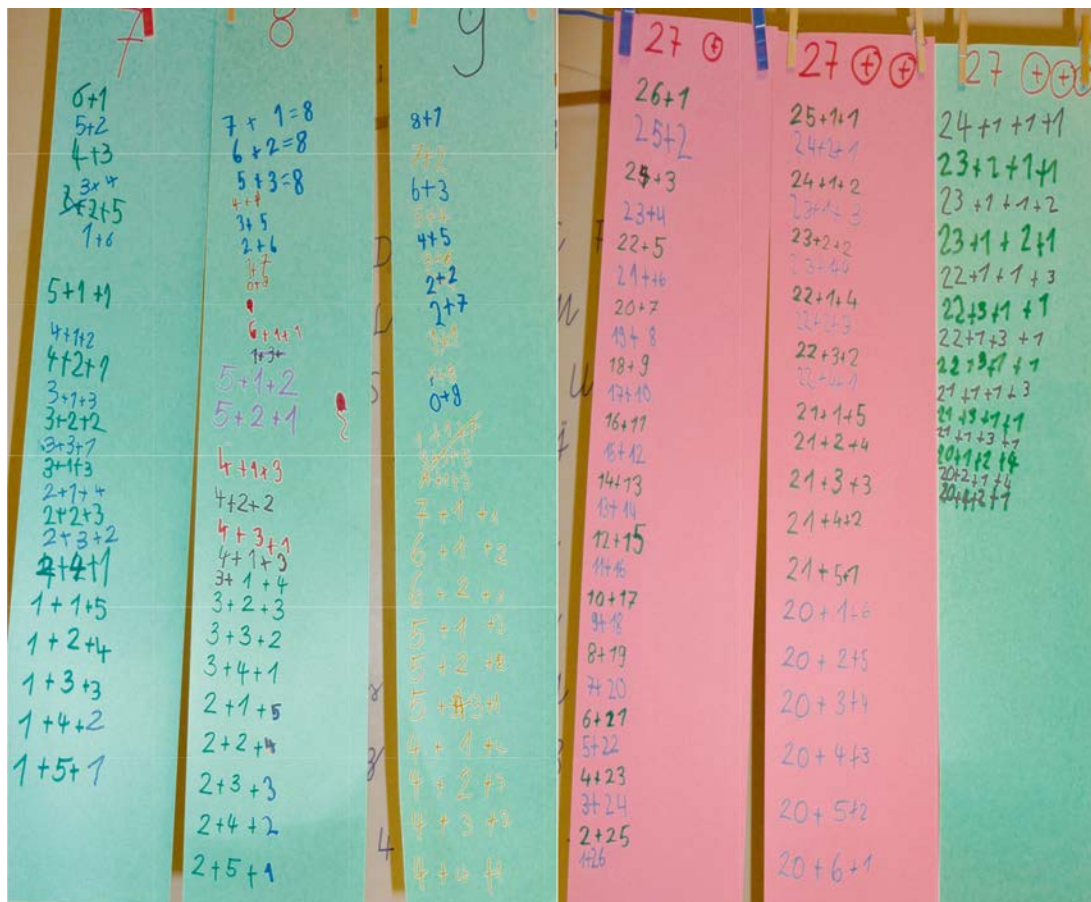 7
6+1
5+2
4+3
3+4
2+5
1+6
5+1+1
4+1+2
4+2+1
3+1+3
3+2+2
3+3+1
3+1+3
2+1+4
2+2+3
2+3+2
2+4+1
1+1+5
1+2+4
1+3+3
1+4+2
1+5+1
8
7+1=8
6+2=8
5+3=8
4+4
3+5
2+6
1+7
0+8
6+1+1
1+3+
5+1+2
5+2+1
4+1+3
4+2+2
4+3+1
4+1+3
3+1+4
3+2+3
3+3+2
3+4+1
2+1+5
2+2+4
2+3+3
2+4+2
2+5+1
9
8+1
7+2
6+3
5+4
4+5
2+2
2+7
0+9
7+1+1
6+1+2
6+2+1
5+1+3
5+2+2
5+3+1
4+1+
4+2+3
4+3+2
4+4+1
27 +
26+1
25+2
24+3
23+4
22+5
21+6
20+7
19+8
18+9
17+10
16+11
15+12
14+13
13+14
12+15
11+16
10+17
9+18
8+19
7+20
6+21
5+22
4+23
3+24
2+25
1+26
27 + +
25+1+1
24+2+1
24+1+2
23+1+3
23+2+2
22+1+4
22+2+3
22+3+2
22+4+1
21+1+5
21+2+4
21+3+3
21+4+2
21+5+1
20+1+6
20+2+5
20+3+4
20+4+3
20+5+2
20+6+1
27 + + +
24+1+1+1
23+2+1+1
23+1+1+2
23+1+2+1
22+1+1+3
22+3+1+1
22+1+3+1
22+3+1+1
21+1+1+3
21+3+1+1
21+1+3+1
20+1+2+4
20+2+1+4
20+4+2+1